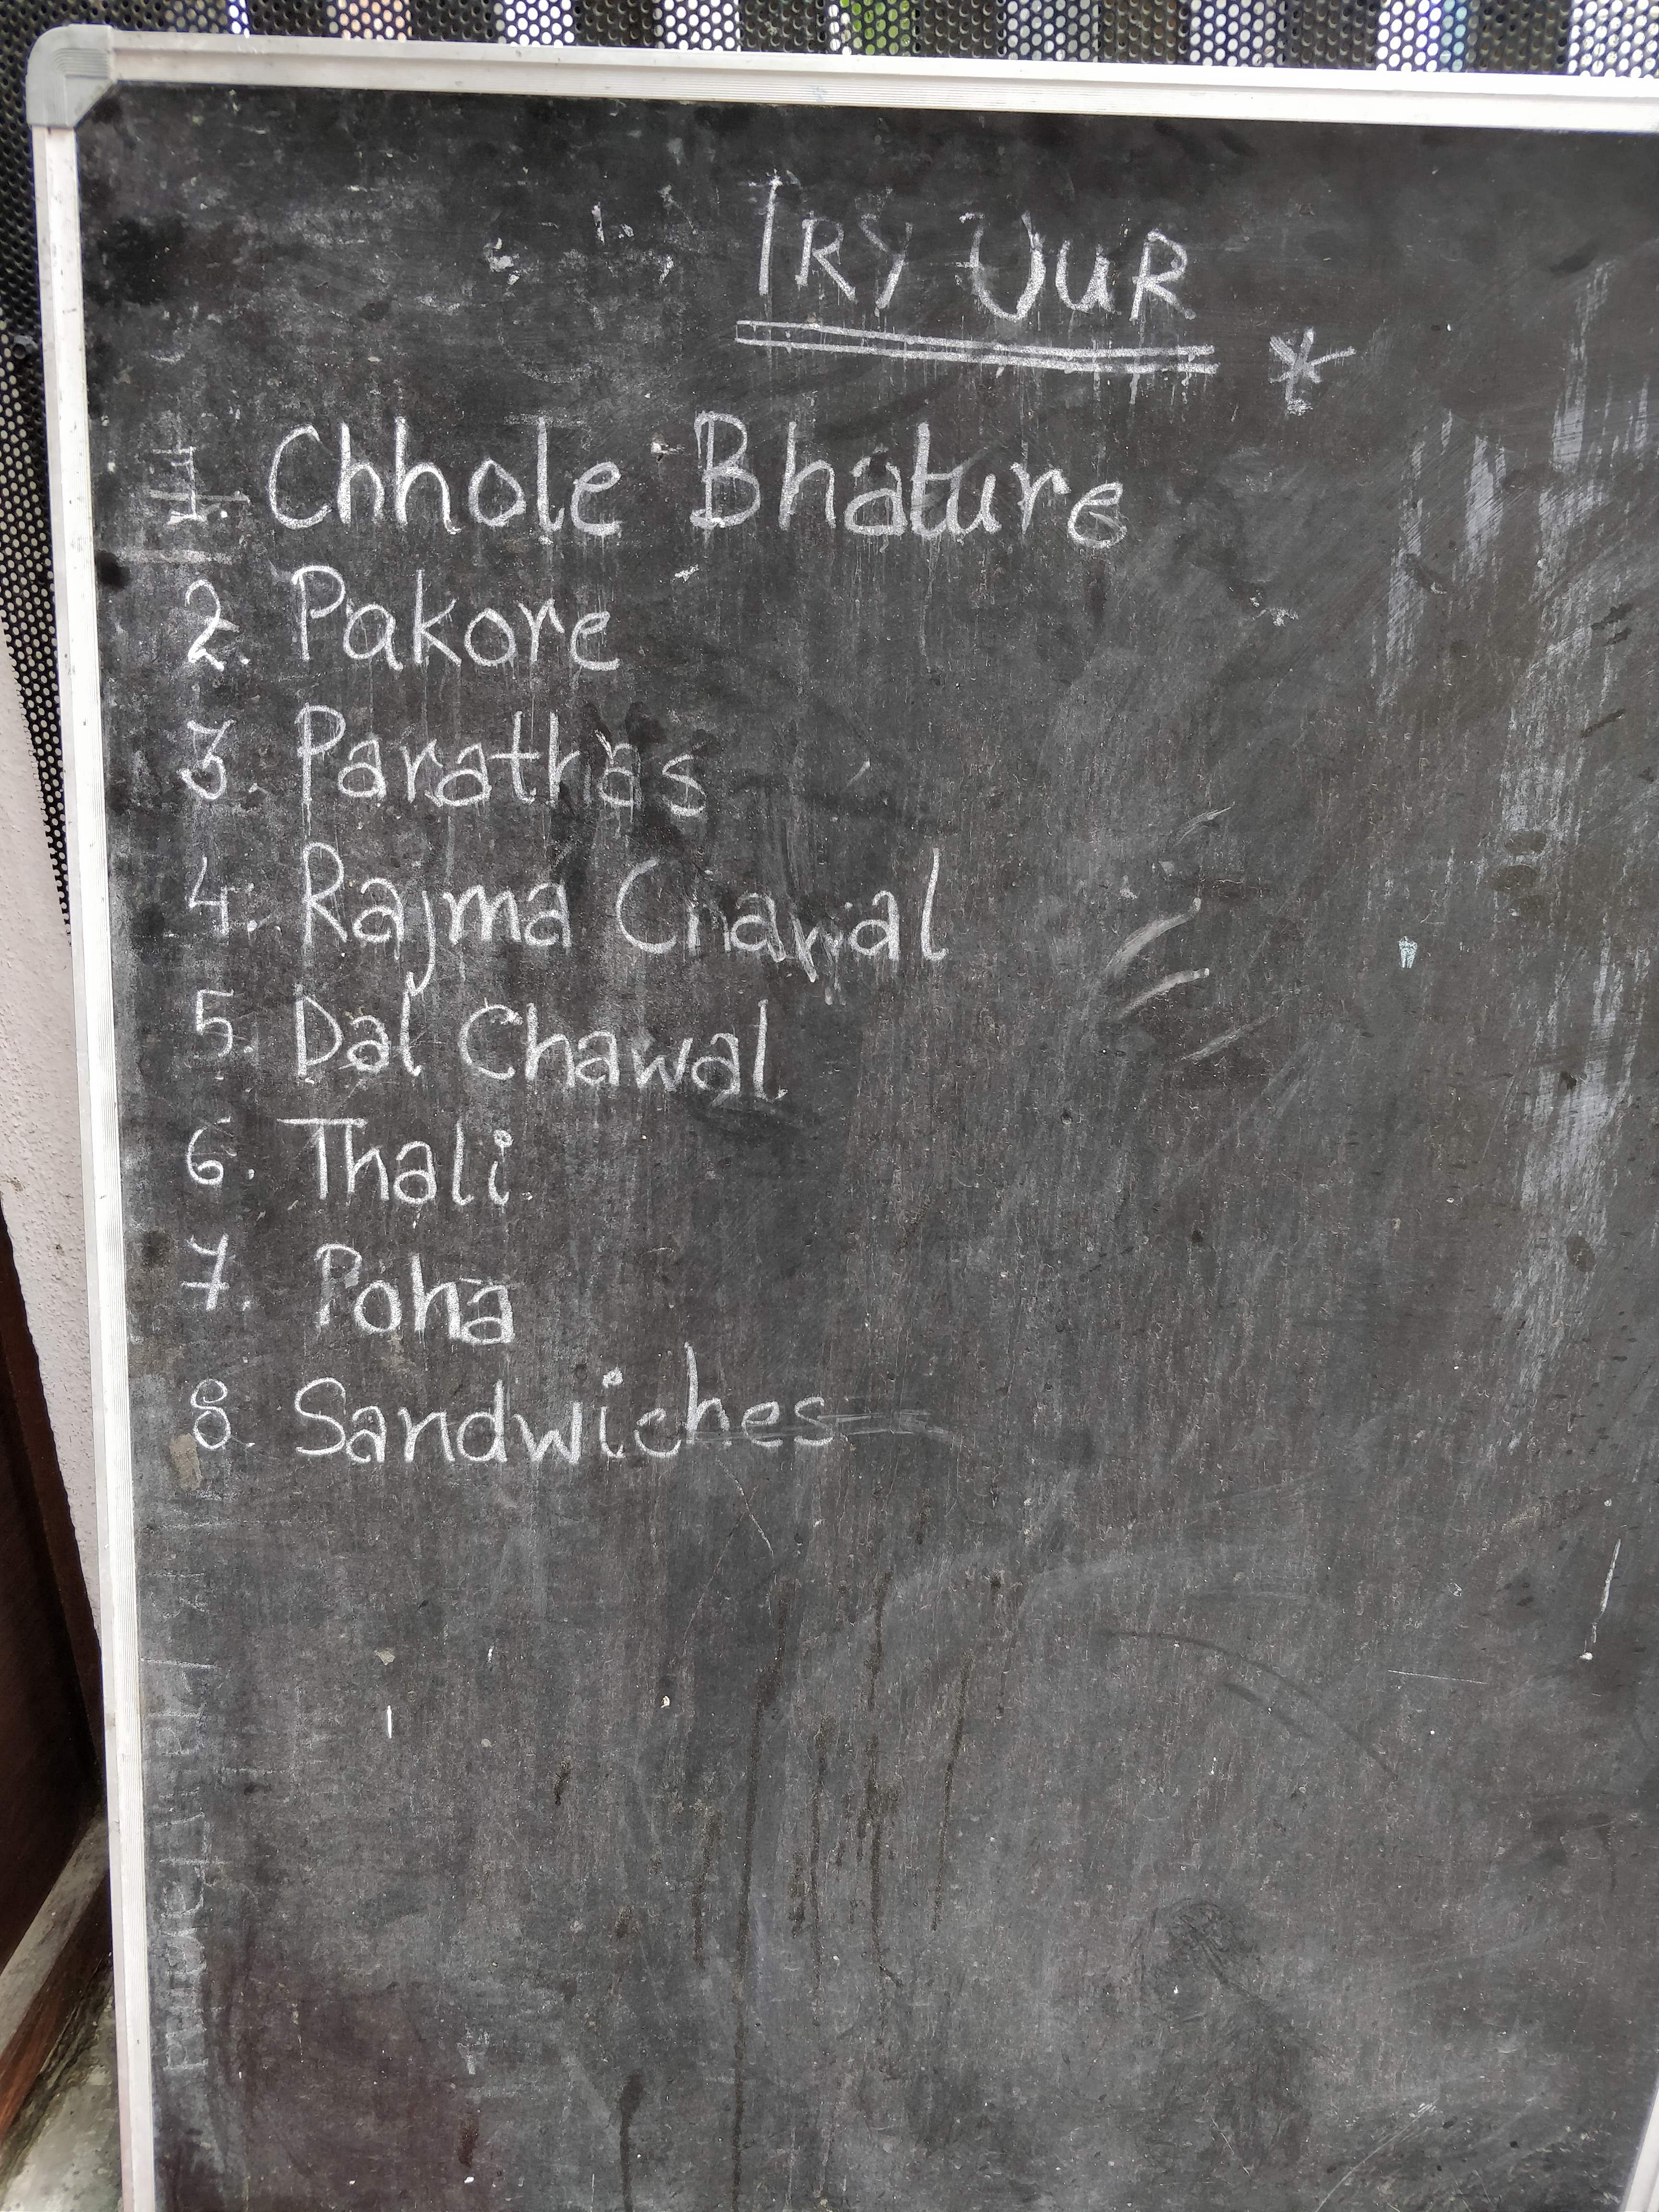 TRY OUR
*
1. Chhole Bhature
2. Pakore
3. Parathas
4. Rajma Chawal
5. Dal Chawal
6. Thali
7. Poha
8. Sandwiches